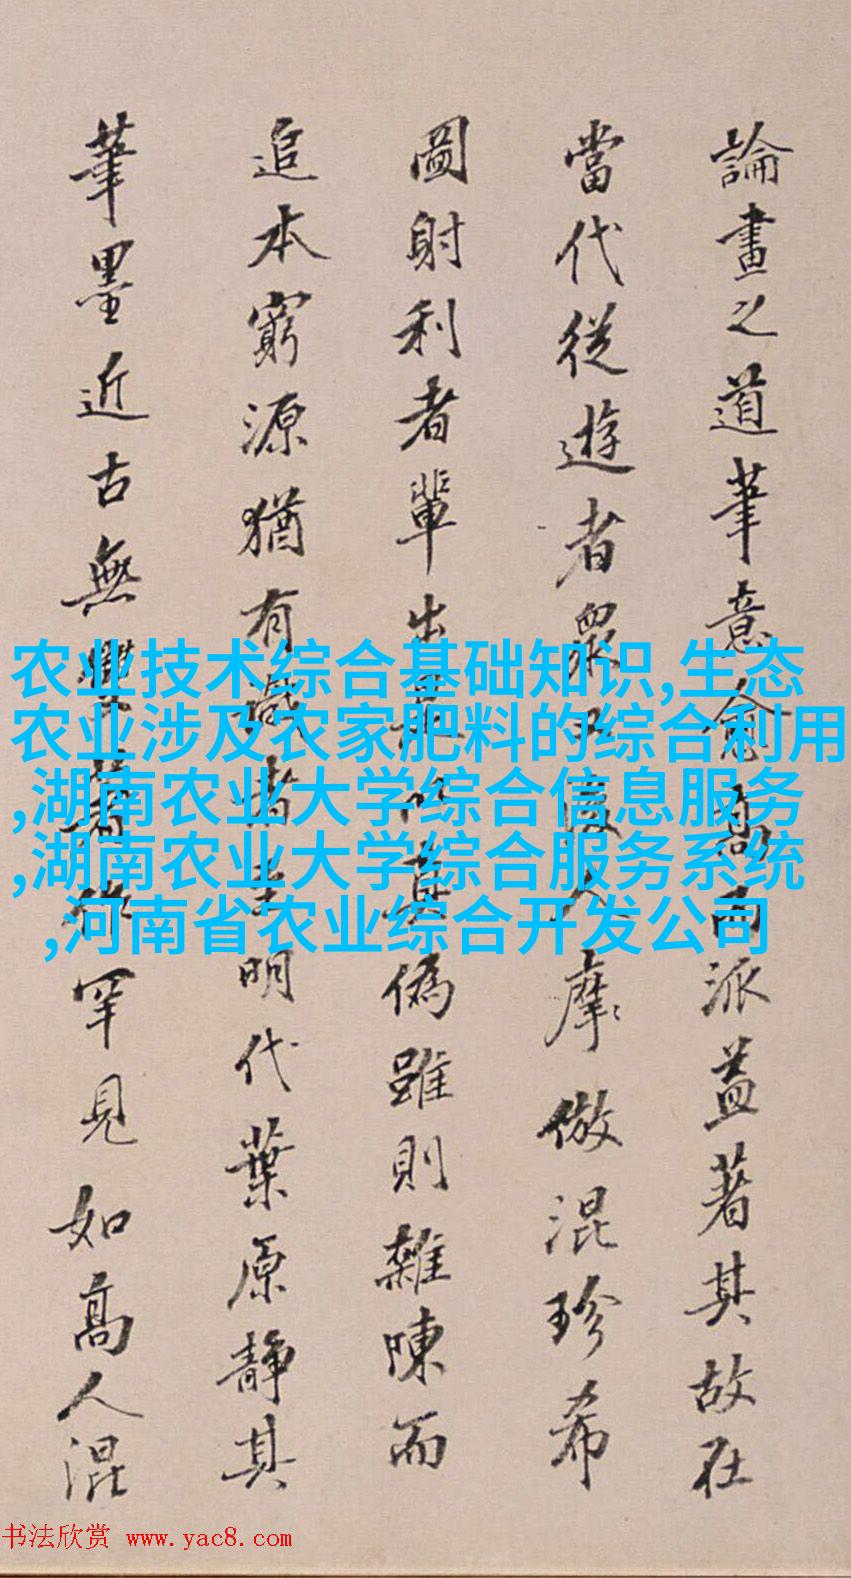 論畫之道筆意愈高而派益著其故在
當代從遊者眾後人摩倣混珍希
圖射利者輩出真偽雖則雜陳而
追本窮源猶有識者明代葉原靜其
筆墨近古無罕見如高人混
农业技术综合基础知识,生态
农业涉及农家肥料的综合利用
,湖南农业大学综合信息服务
,湖南农业大学综合服务系统
,河南省农业综合开发公司
书法欣赏 www.yac8.com